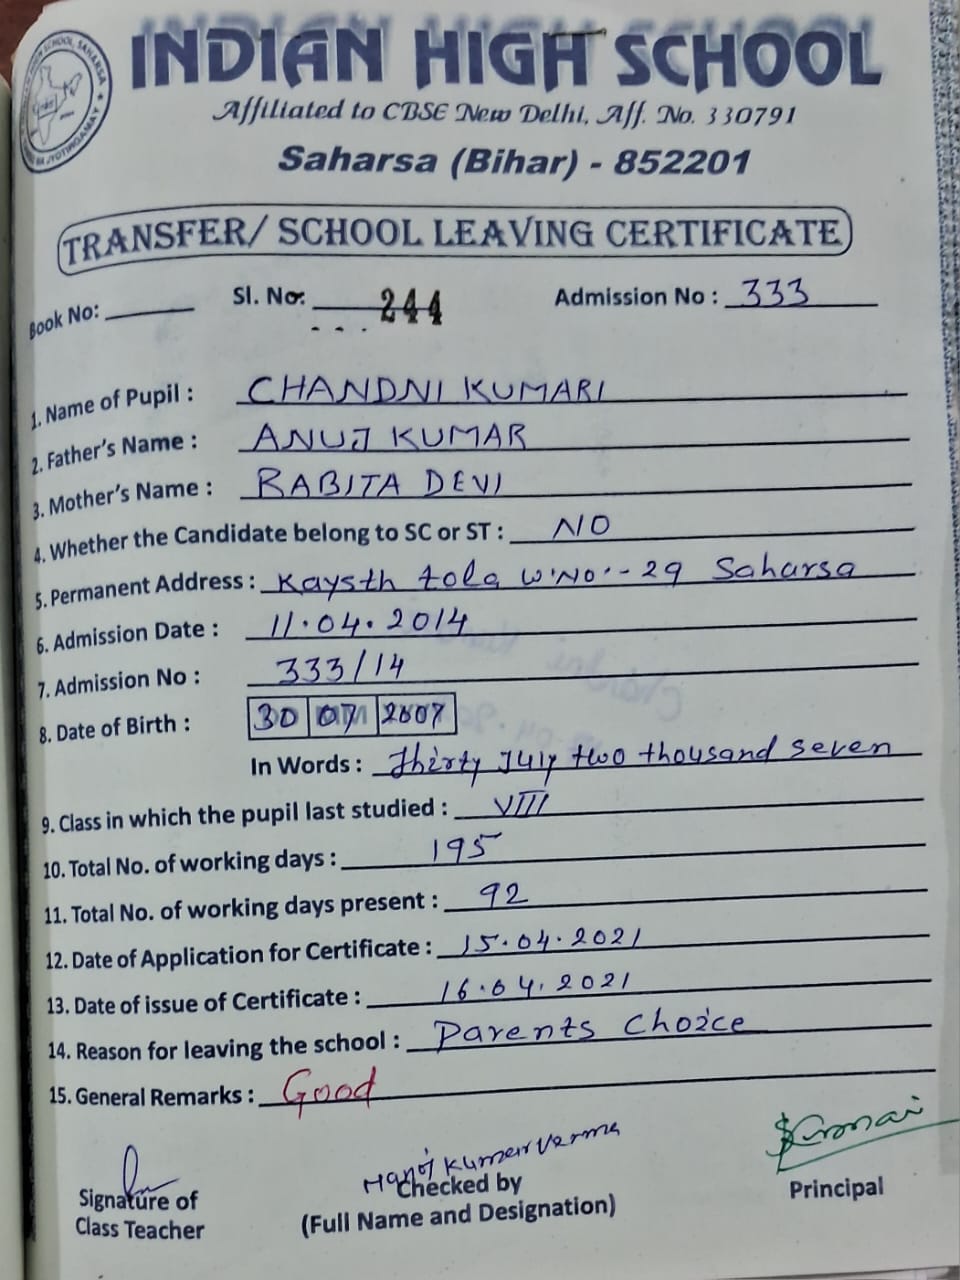 INDIAN HIGH SCHOOL
Affiliated to CBSE New Delhi, Aff. No. 330791
Saharsa (Bihar) - 852201
TRANSFER/ SCHOOL LEAVING CERTIFICATE
Book No: Sl. No: 244 Admission No : 333
1. Name of Pupil : CHANDNI KUMARI
2. Father's Name : ANUJ KUMAR
3. Mother's Name : BABITA DEVI
4. Whether the Candidate belong to SC or ST : NO
5. Permanent Address : Kaysth tola W.NO.-29 Saharsa
6. Admission Date : 11.04.2014
7. Admission No : 333/14
8. Date of Birth : 30 07 2007
In Words : Thirty July two thousand seven
9. Class in which the pupil last studied : VIII
10. Total No. of working days : 195
11. Total No. of working days present : 92
12. Date of Application for Certificate : 15.04.2021
13. Date of issue of Certificate : 16.04.2021
14. Reason for leaving the school : Parents Choice
15. General Remarks : Good
Manoj Kumar Verma
Signature of Class Teacher
Checked by
(Full Name and Designation)
Principal